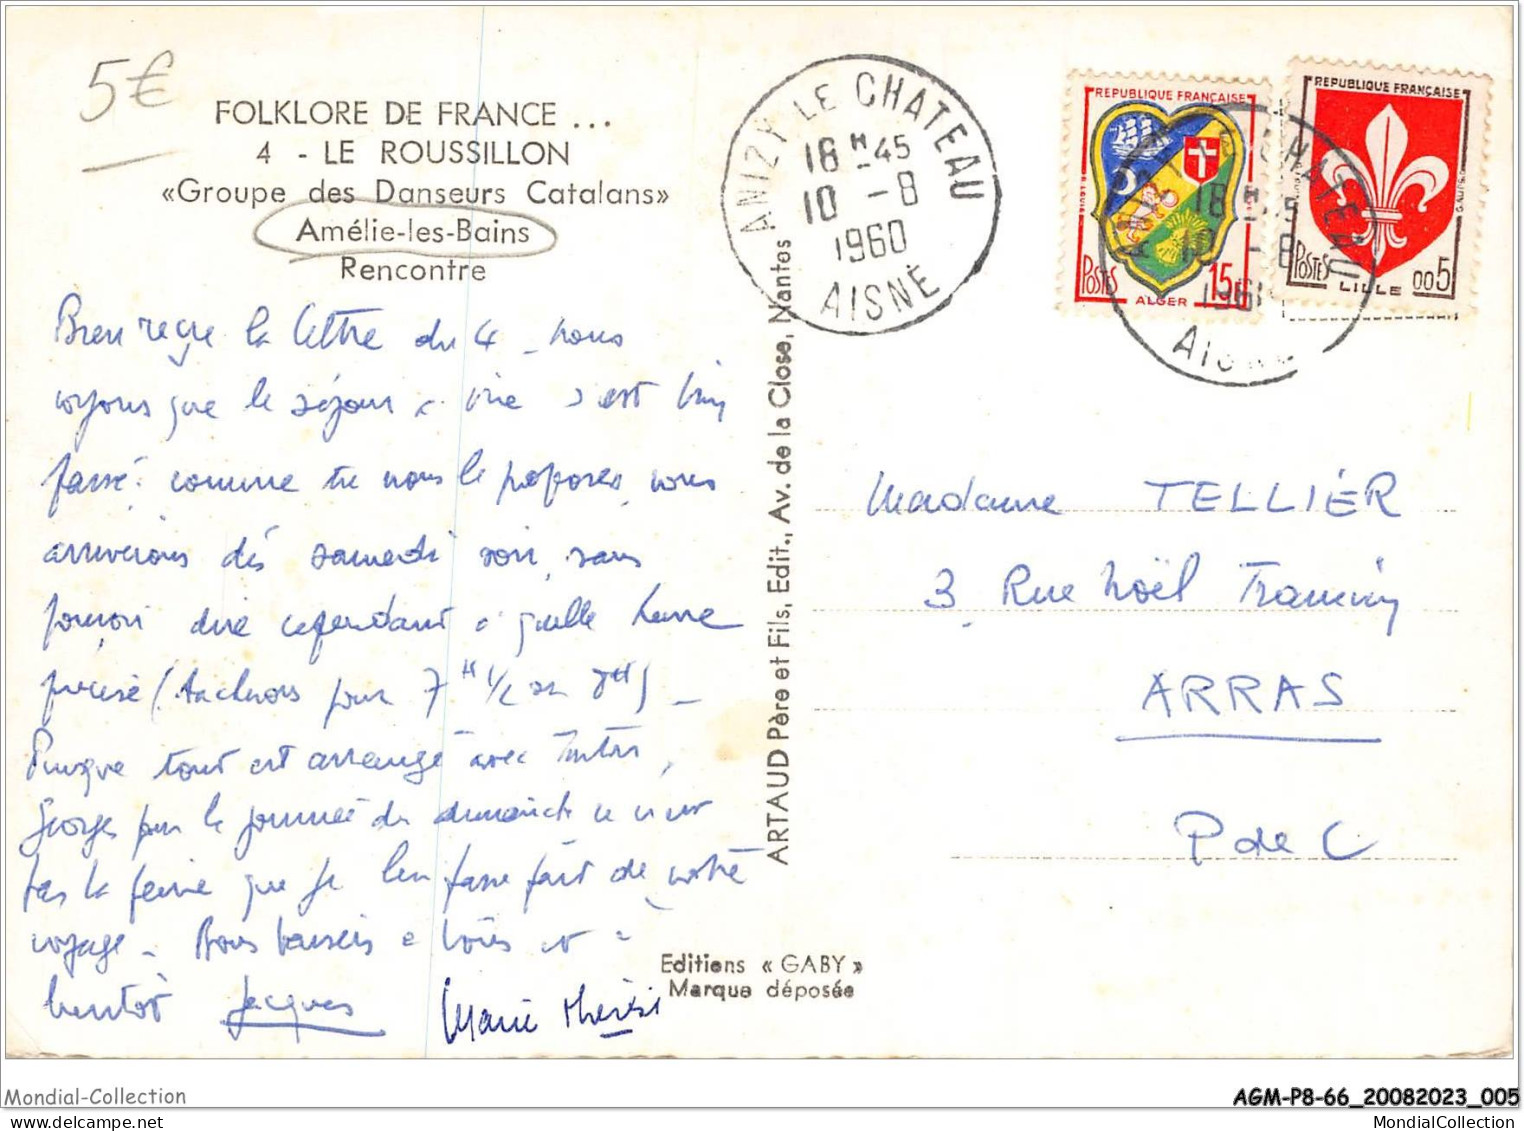 5€
FOLKLORE DE FRANCE ...
4 - LE ROUSSILLON
«Groupe des Danseurs Catalans»
Amélie-les-Bains
Rencontre
ANIZY LE CHATEAU
18 H 45
10 - 8
1960
AISNE
REPUBLIQUE FRANÇAISE
POSTES
15F
ALGER
REPUBLIQUE FRANÇAISE
POSTES
LILLE
005
18 H 45
10 - 8
196
AISNE
Bien reçu la lettre du 4 - nous
voyons que le séjour à s'est bien
passé. comme tu nous le proposes, nous
arriverions dès samedi soir, sans
pouvoir dire cependant à quelle heure
précise ( pour 7 H 1/2 ou 8H) -
Puisque tout est arrangé avec
Georges pour la journée du dimanche ce n'est
pas la peine que je leur fasse part de notre
voyage - Bons baisers à tous et à
bientôt Jacques Marie Thérèse
ARTAUD Père et Fils, Edit., Av. de la Close, Nantes
Editions « GABY »
Marque déposée
Madame TELLIER
3 Rue Noël
ARRAS
P de C
Mondial-Collection
AGM-P8-66_20082023_005
MondialCollection